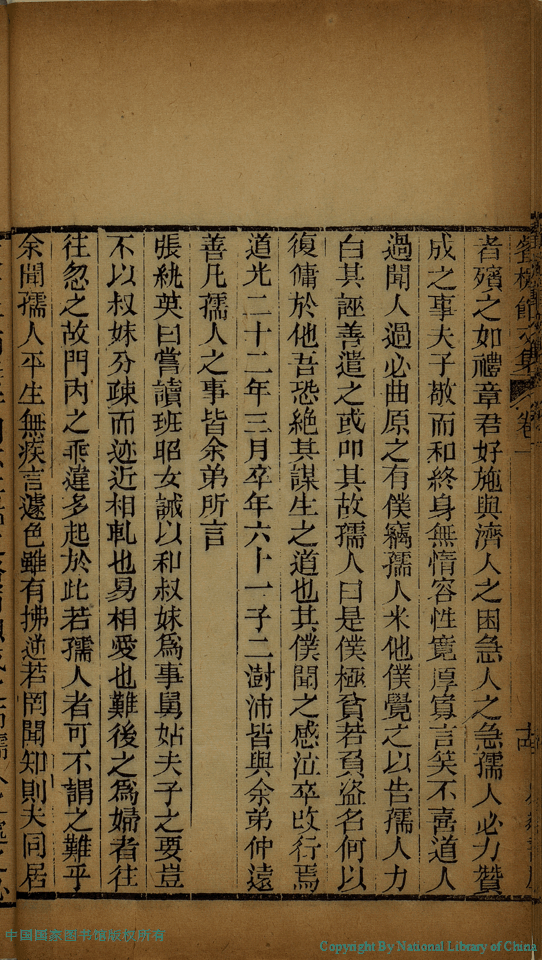 者殯之如禮章君好施與濟人之困急人之急孺人必力贊
成之事夫子敬而和終身無惰容性寬厚寡言笑不喜道人
過聞人過必曲原之有僕竊孺人米他僕覺之以告孺人力
白其誣善遣之或叩其故孺人曰是僕極貧若負盜名何以
復傭於他吾恐絶其謀生之道也其僕聞之感泣卒改行焉
道光二十二年三月卒年六十一子二澍沛皆與余弟仲遠
善凡孺人之事皆余弟所言
張紈英曰嘗讀班昭女誡以和叔妹爲事舅姑夫子之要豈
不以叔妹分疎而迹近相軋也易相愛也難後之爲婦者往
往忽之故門內之乖違多起於此若孺人者可不謂之難乎
余聞孺人平生無疾言遽色雖有拂逆若罔聞知則夫同居
中国国家图书馆版权所有
Copyright By National Library of China